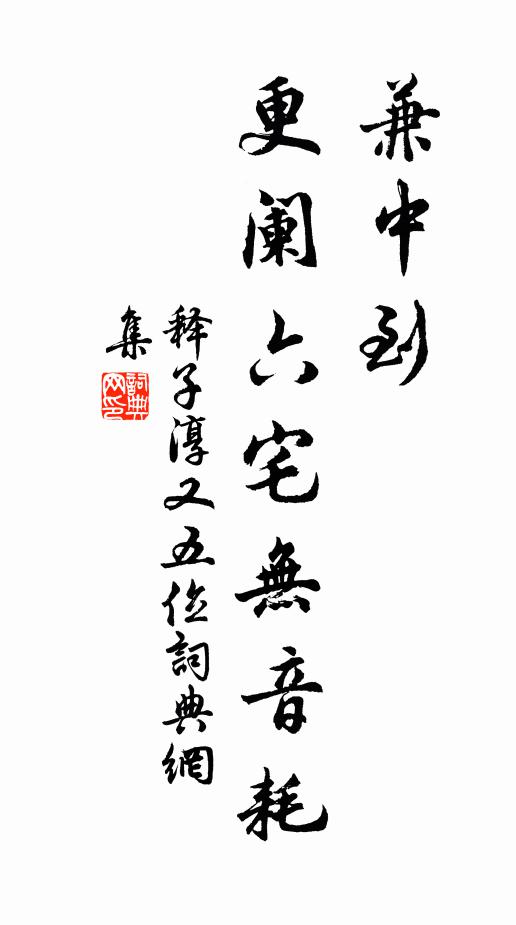 兼中到
更阑六宅無音耗
释子淳又五位詞典網
集
詞典
网印